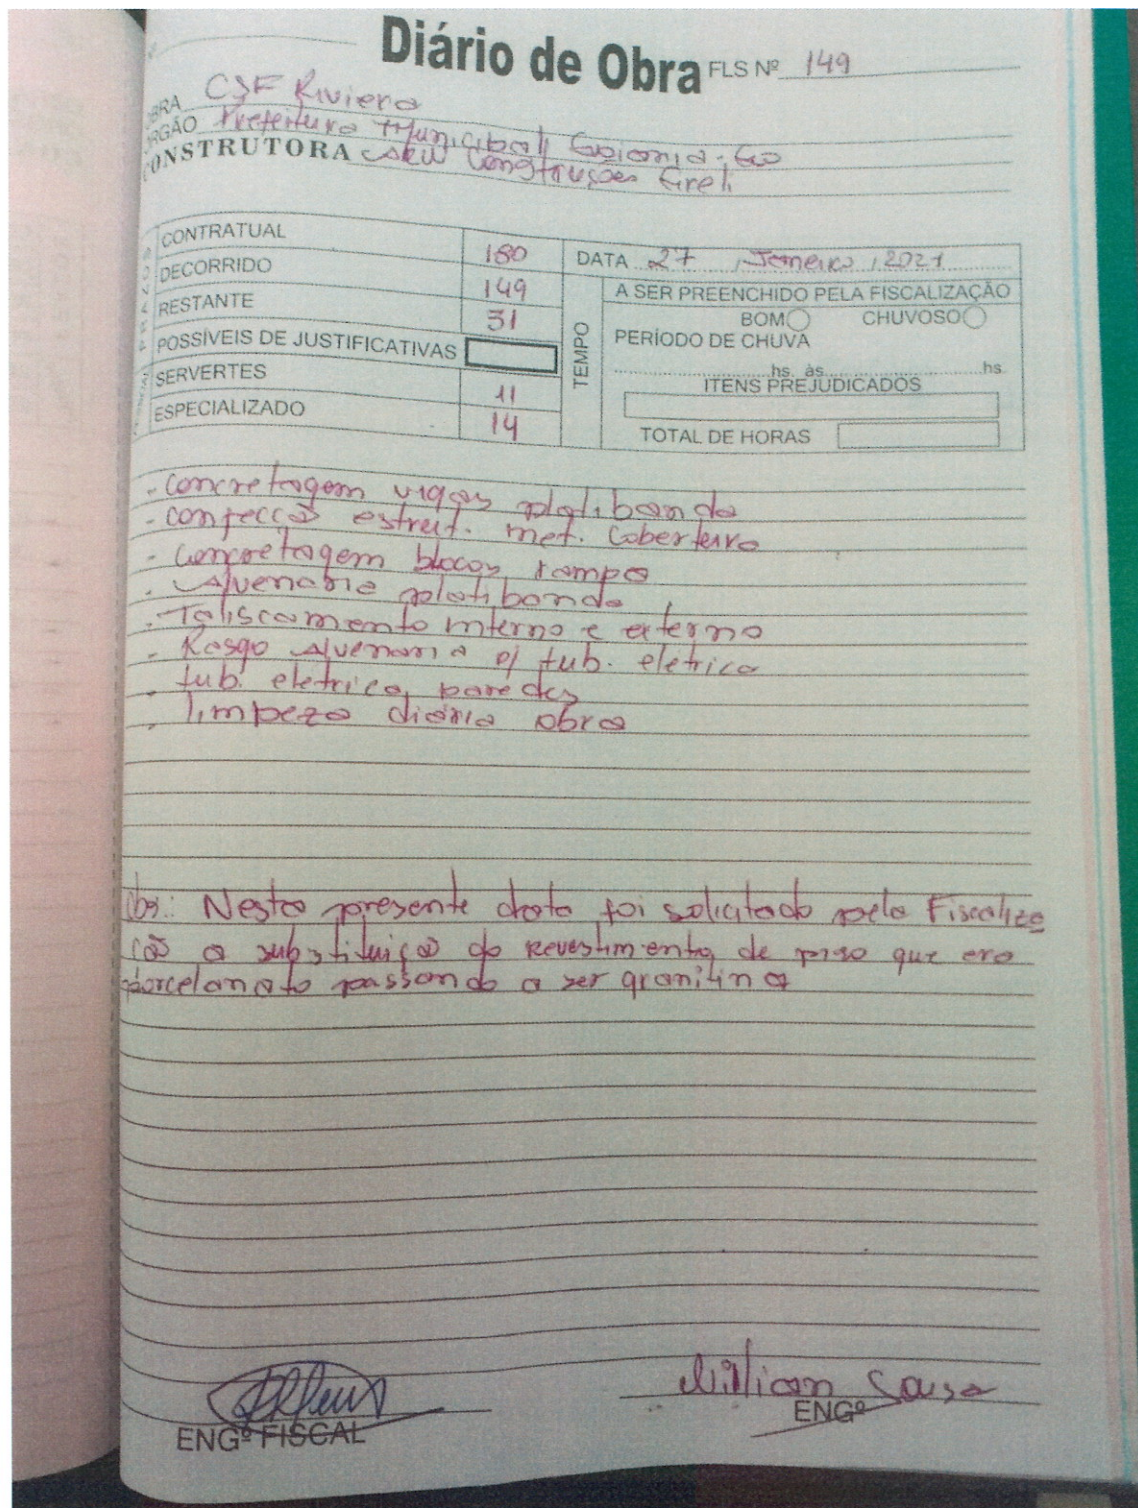 Diário de Obra FLS Nº 149
OBRA CSF Riviera
ORGÃO Prefeitura Municipal Goiania-Go
CONSTRUTORA Construções Eireli
CONTRATUAL 180
DECORRIDO 149
RESTANTE 31
POSSÍVEIS DE JUSTIFICATIVAS
SERVERTES 11
ESPECIALIZADO 14
DATA 27 Janeiro 2021
TEMPO
A SER PREENCHIDO PELA FISCALIZAÇÃO
BOM CHUVOSO
PERÍODO DE CHUVA
hs. às hs.
ITENS PREJUDICADOS
TOTAL DE HORAS
- Concretagem vigas platibanda
- Confecção estrut. met. Cobertura
- Concretagem blocos rampa
- Alvenaria platibanda
- Taliscamento interno e externo
- Rasgo Alvenaria p/ tub. eletrica
- tub. eletrica paredes
- limpeza diária obra
Obs: Nesta presente data foi solicitado pela Fiscaliza
ção a substituição do Revestimento de piso que era
porcelanato passando a ser granitina
ENGº FISCAL
Willian Sousa
ENGº